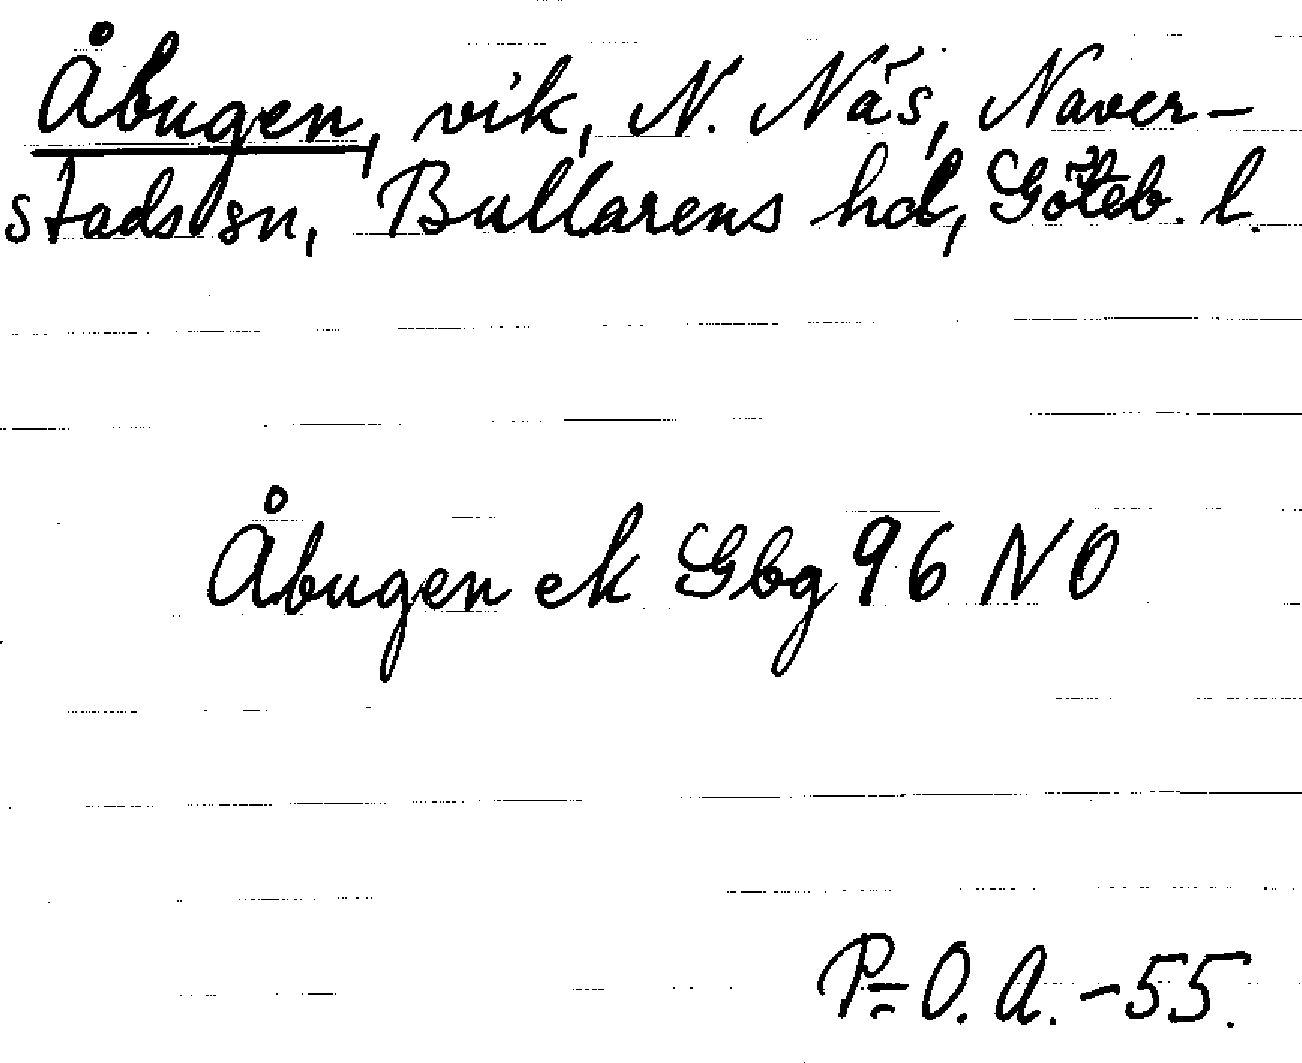 Åbugen, vik, N. Näs, Naver-
stads sn, Bullarens hd, Göteb. l.
Åbugen ek Gbg 96 NO
P-O. A. -55.